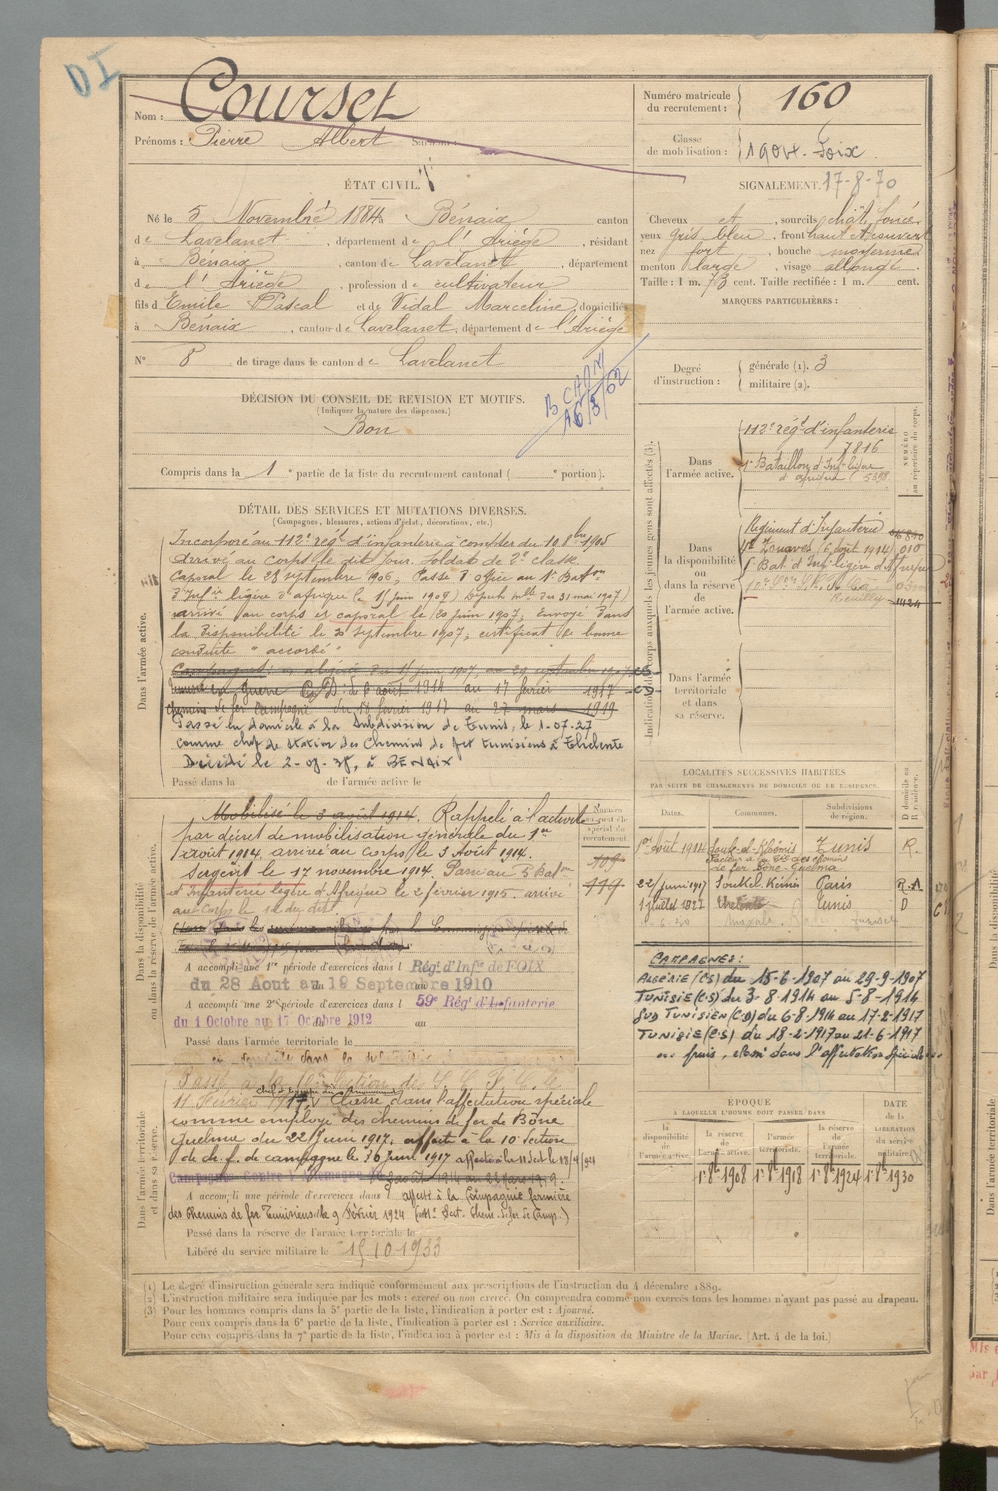 DI
Nom : Courset
Prénoms : Pierre Albert Surnom :
Numéro matricule du recrutement : 160
Classe de mobilisation : 1904 - Foix
ÉTAT CIVIL.
Né le 5 Novembre 1884 à Bénaix canton
de Lavelanet, département de l'Ariège, résidant
à Bénaix, canton de Lavelanet, département
de l'Ariège, profession de cultivateur
fils d'Emile Pascal et de Vidal Marceline, domiciliés
à Bénaix, canton de Lavelanet, département de l'Ariège
N° 8 de tirage dans le canton de Lavelanet
SIGNALEMENT. 17-8-70
Cheveux et, sourcils chât. foncé
yeux gris bleu, front haut et couvert
nez fort, bouche moyenne
menton large, visage allongé.
Taille : 1 m. 73 cent. Taille rectifiée : 1 m. cent.
MARQUES PARTICULIÈRES :
DÉCISION DU CONSEIL DE REVISION ET MOTIFS.
(Indiquer la nature des dispenses.)
Bon
16/3/62
Compris dans la 1e partie de la liste du recrutement cantonal ( e portion).
Degré d'instruction : générale (1). 3
militaire (2).
Indication des corps auxquels les jeunes gens sont affectés (3).
NUMÉRO au répertoire du corps.
Dans l'armée active.
112e régt d'infanterie
7816
1er Bataillon d'Inf. légère
d'Afrique
Dans la disponibilité ou dans la réserve de l'armée active.
Régiment d'Infanterie
4e Zouaves (6 août 1914)
5e Bat. d'Inf. légère d'Afrique
Dans l'armée territoriale et dans sa réserve.
DÉTAIL DES SERVICES ET MUTATIONS DIVERSES.
(Campagnes, blessures, actions d'éclat, décorations, etc.)
Dans l'armée active.
Incorporé au 112e régt d'infanterie à compter du 10 8bre 1905
Arrivé au corps le dit jour. Soldat de 2e classe.
Caporal le 28 septembre 1906, Passé d'office au 1er Baton
d'Infrie légère d'Afrique le 15 juin 1907
arrivé au corps et caporal le 20 juin 1907, Envoyé dans
la disponibilité le 30 septembre 1907, certificat de bonne
conduite "accordé"
Campagnes : en Algérie du 15 juin 1907 au 29 septembre 1907
Tunisie en Guerre CD : le 6 août 1914 au 17 février 1917
chemins de fer campagne du 18 février 1917 au 27 mars 1919
Passé en domicile à la Subdivision de Tunis, le 1-07-27
comme chef de station des Chemins de fer tunisiens à
Décédé le 2-08-38, à BENAIX
Passé dans la de l'armée active le
LOCALITÉS SUCCESSIVES HABITÉES
PAR SUITE DE CHANGEMENTS DE DOMICILE OU DE RÉSIDENCE.
Dates. Communes. Subdivisions de région. D domicile ou R résidence.
1er Août 1914 Souk-el-Khémis Tunis R.
Facteur à la Cie des chemins
de fer Bône-Guelma
22 juin 1917 Soukel Kémis Paris R.A.
1 juillet 1927 Tunis D
Dans la disponibilité ou dans la réserve de l'armée active.
Mobilisé le 3 août 1914. Rappelé à l'activité
par décret de mobilisation générale du 1er
août 1914, arrivé au corps le 3 Août 1914.
Sergent le 17 novembre 1914. Passé au 5 Baton
d'Infanterie légère d'Afrique le 2 février 1915, arrivé
au corps le dit.
119
119
A accompli une 1re période d'exercices dans l Rég. d'Inf. de FOIX
du 28 Aout au 19 Septembre 1910
A accompli une 2e période d'exercices dans l 59e Rég. d'Infanterie
du 1 Octobre au 17 Octobre 1912 au
Passé dans l'armée territoriale le
CAMPAGNES :
ALGERIE (CS) du 15-6-1907 au 29-9-1907
TUNISIE (CS) du 3-8-1914 au 5-8-1914
SUD TUNISIEN (CD) du 6-8-1914 au 17-2-1917
TUNISIE (CS) du 18-2-1917 au 21-6-1917
puis, classé dans l'affectation spéciale
Dans l'armée territoriale et dans sa réserve.
Passé à la 10e Section des
11 Février 1917, Classé dans l'affectation spéciale
comme employé des chemins de fer de Bône
Guelma du 22 Juin 1917, affecté à la 10e Section
de ch. f. de campagne le 30 Juin 1917
Campagne Contre l'Allemagne du 3 août 1914
A accompli une période d'exercices dans l affecté à la Compagnie fermière
des Chemins de fer Tunisiens le 9 Février 1924
Passé dans la réserve de l'armée territoriale le
Libéré du service militaire le 15.10.1933
ÉPOQUE
À LAQUELLE L'HOMME DOIT PASSER DANS
la disponibilité de l'armée active. la réserve de l'armée active. l'armée territoriale. la réserve de l'armée territoriale. DATE de la LIBÉRATION du service militaire.
1er 8bre 1908 1er 8bre 1918 1er 8bre 1924 1er 8bre 1930
(1) Le degré d'instruction générale sera indiqué conformément aux prescriptions de l'instruction du 4 décembre 1889.
(2) L'instruction militaire sera indiquée par les mots : exercé ou non exercé. On comprendra comme non exercés tous les hommes n'ayant pas passé au drapeau.
(3) Pour les hommes compris dans la 5e partie de la liste, l'indication à porter est : Ajourné.
Pour ceux compris dans la 6e partie de la liste, l'indication à porter est : Service auxiliaire.
Pour ceux compris dans la 7e partie de la liste, l'indication à porter est : Mis à la disposition du Ministre de la Marine. (Art. 4 de la loi.)